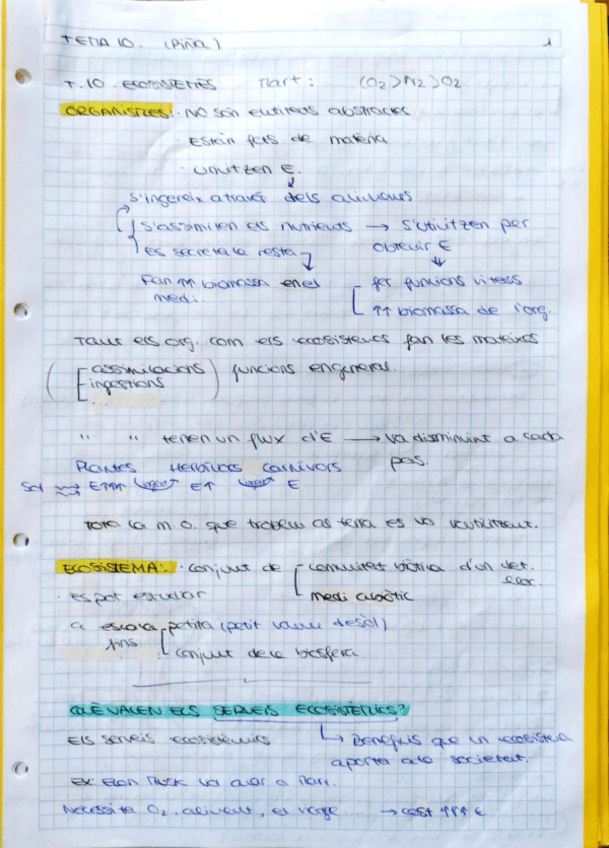 TEMA 10. (Piña) 1
T.10. ECOSISTEMES Mart: CO2>N2>O2
ORGANISMES: · NO són entitats abstractes
· Están fets de matèria
· Utilitzen E.
S'ingereix a través dels aliments
S'assimilen els nutrients → S'utilitzen per
es secreta la resta obtenir E
Fan ↑↑ biomassa en el fer funcions vitals
medi ↑↑ biomassa de l'org.
Tant els org. com els ecosistemes fan les mateixes
( assimilacions ) funcions en general.
ingestions
...
" " tenen un flux d'E → va disminuint a cada
Plantes Herbívors carnívors pas.
Sol E↑↑↑ E↑ E
Tota la M.O. que trobem as terra es va reutilitzant.
ECOSISTEMA: · conjunt de comunitat biòtica d'un det.
· es pot estudiar medi abiòtic
a escala petita (petit volum de sòl)
fins conjunt de la biosfera
QUÈ VALEN ELS SERVEIS ECOSISTÈMICS?
Els serveis ecosistèmics → Beneficis que un ecosistema
aporta a la societat.
Ex: Elon Musk va anar a Mart.
Necessita O2, aliment, el viatge ... → cost ↑↑↑ €